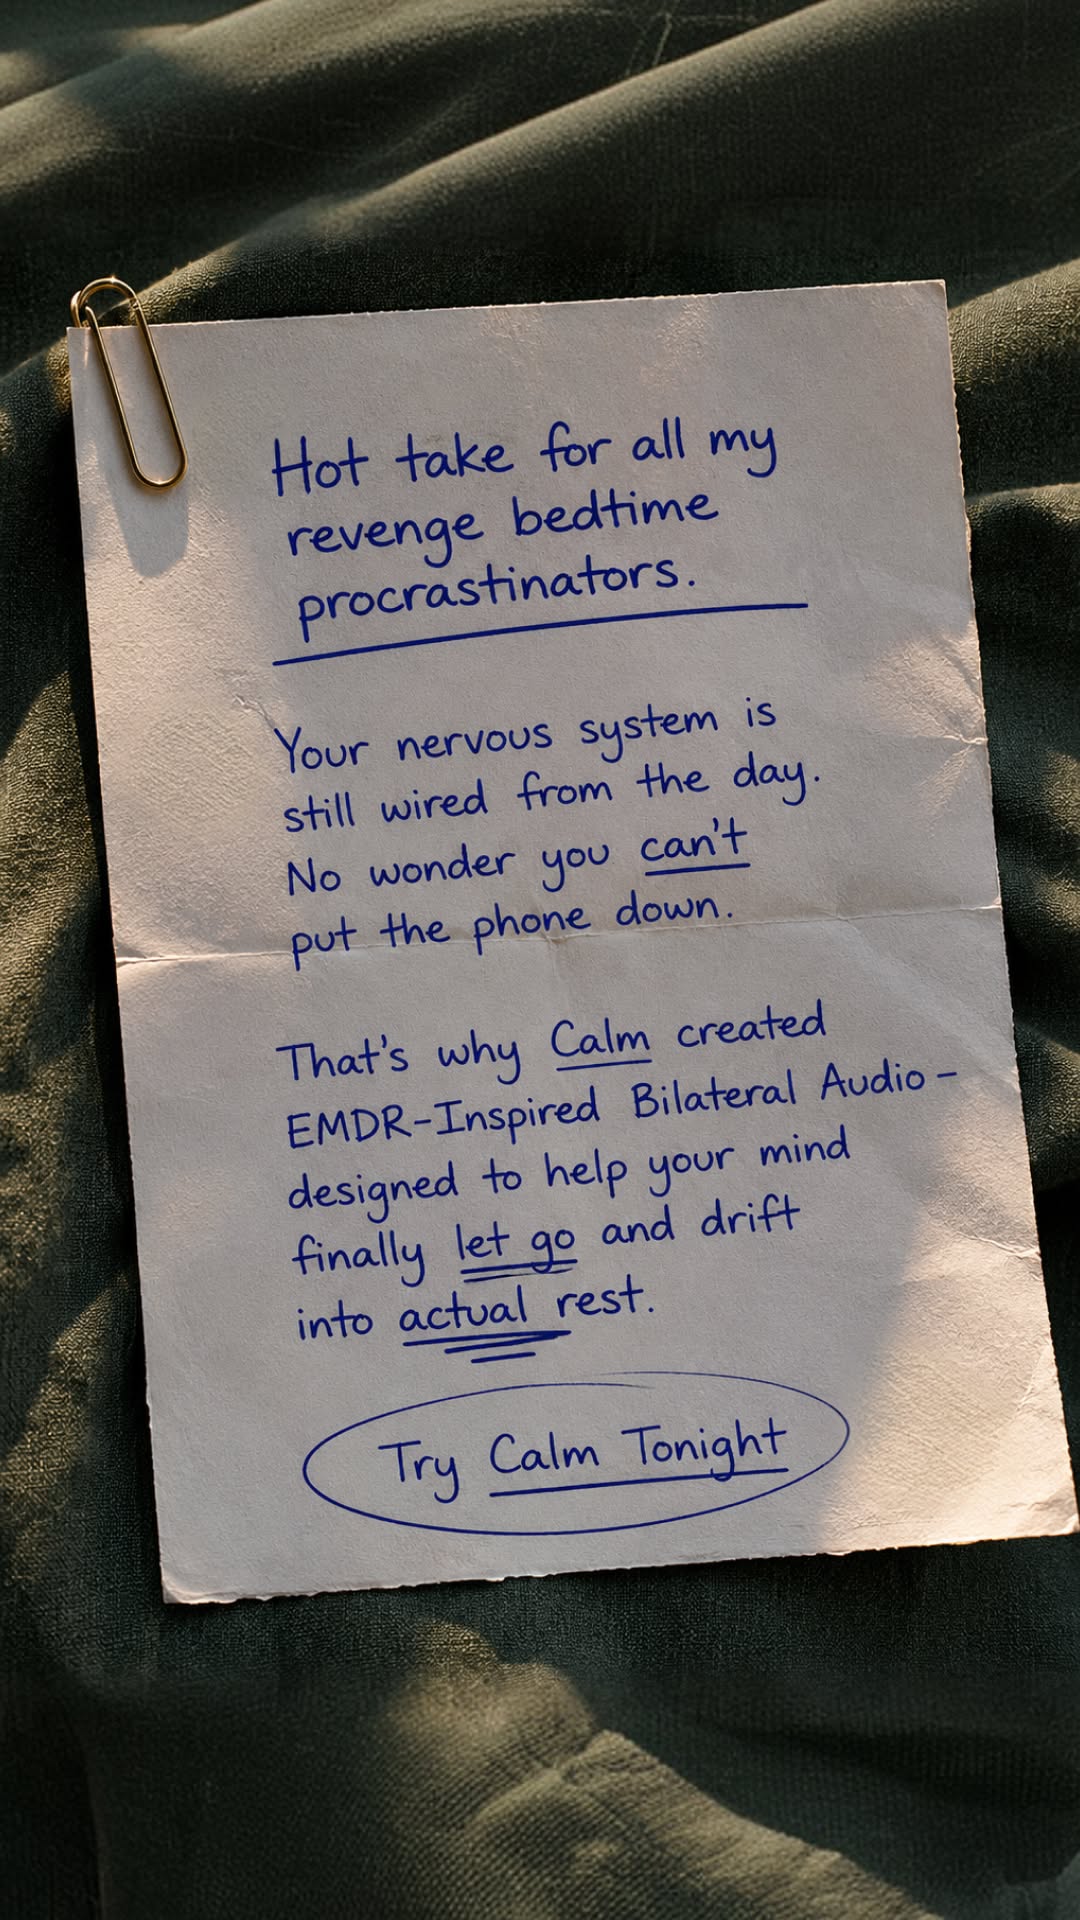 Hot take for all my
revenge bedtime
procrastinators.
Your nervous system is
still wired from the day.
No wonder you can't
put the phone down.
That's why Calm created
EMDR-Inspired Bilateral Audio-
designed to help your mind
finally let go and drift
into actual rest.
Try Calm Tonight